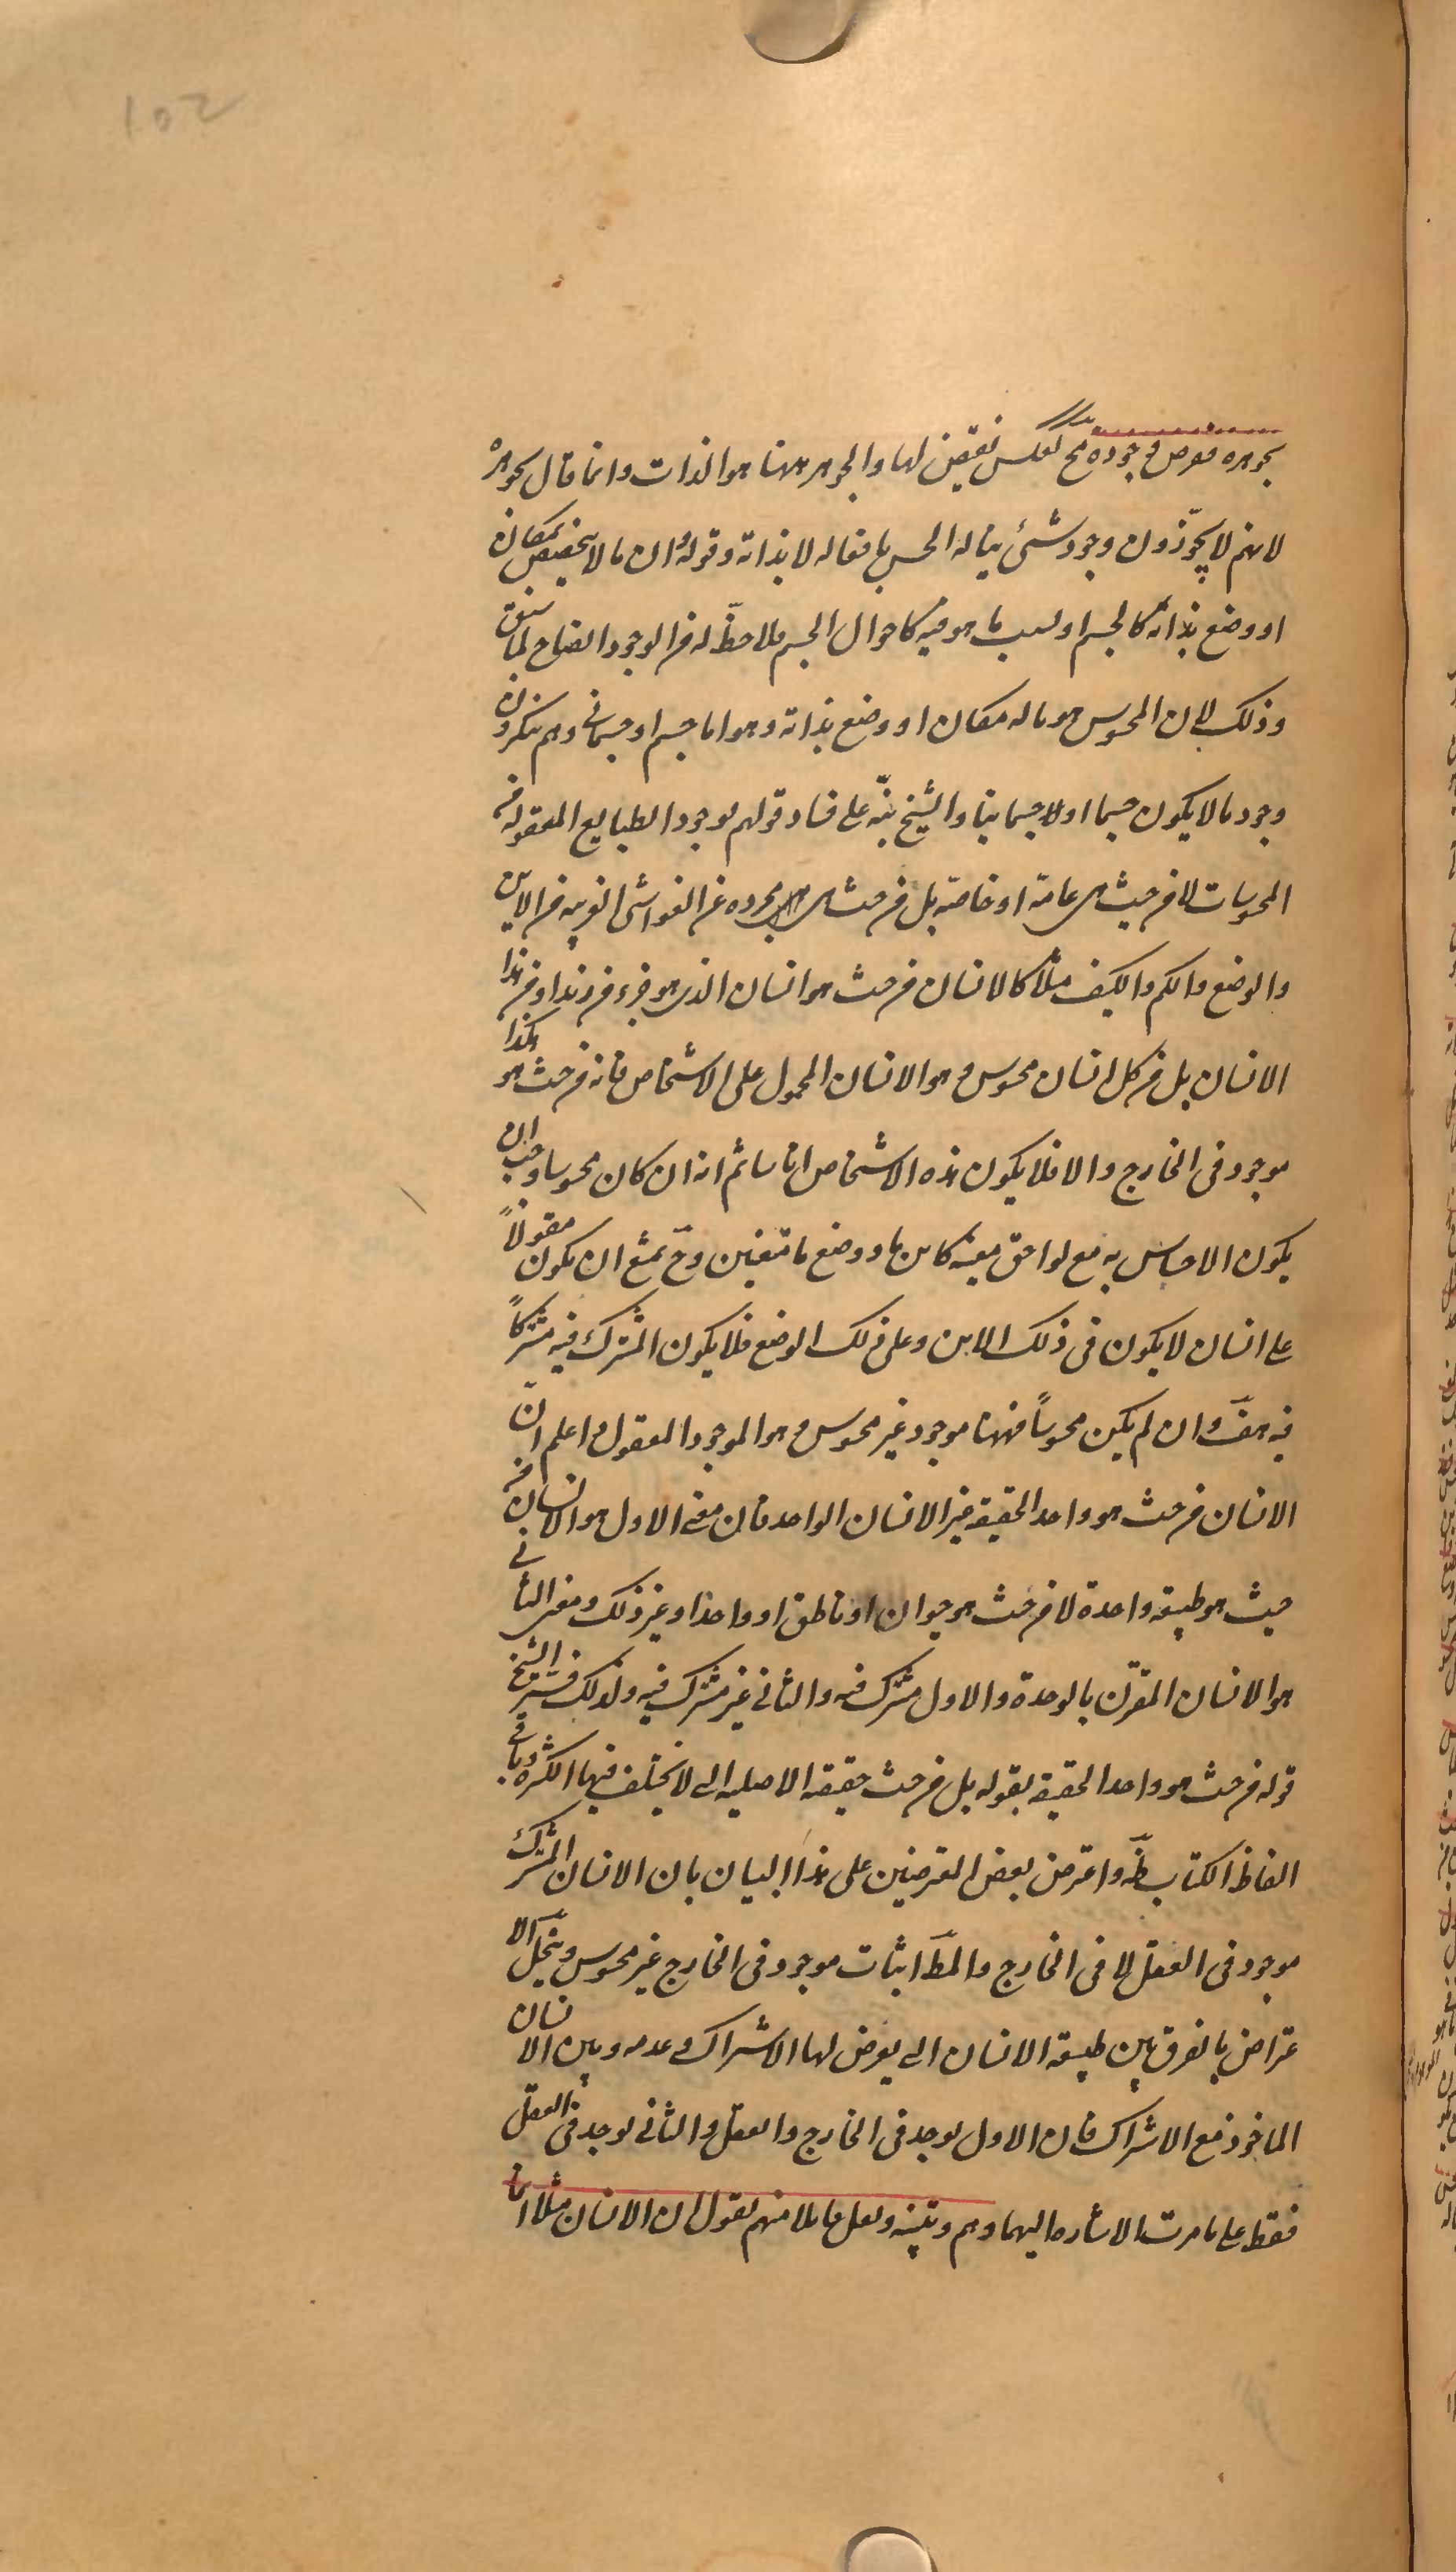 102
بجوهره ففرض وجوده مح كعكس نقيض لها والجوهر ههنا هو الذات وانما قال بجوهره
لانهم لا يجوّزون وجود شئ يناله الحس بافعاله لا بذاته وقوله وان ما لا يتخصص بمكان
او وضع بذاته كالجسم او بسبب ما هو فيه كاحوال الجسم فلا حظّ له من الوجود ايضاح لما سبق
وذلك لان المحسوس هو ما له مكان او وضع بذاته وهو اما جسم او جسمانى وهم ينكرون
وجود ما لا يكون جسما او لا جسمانيا والشيخ نبّه على فساد قولهم بوجود الطبايع المعقولة من
المحسوسات لا من حيث هى عامة او خاصة بل من حيث هى مجرده عن الغواشى الغريبه من الاين
والوضع والكم والكيف مثلا كالانسان من حيث هو انسان الذى هو جزء من زيد او من هذا
الانسان بل من كل انسان محسوس وهو الانسان المحمول على الاشخاص فانه من حيث هو هكذا
موجود فى الخارج والا فلا يكون هذه الاشخاص اناسا ثم انه ان كان محسوسا وجب ان
يكون الاحساس به مع لواحق معينه كاين ما ووضع ما متعينين وحَ يمتنع ان يكون مقولاً
على انسان لا يكون فى ذلك الاين وعلى ذلك الوضع فلا يكون المشترك فيه مشتركاً
فيه هفَ وان لم يكن محسوساً فههنا موجود غير محسوس وهو الموجود المعقول واعلم انّ
الانسان من حيث هو واحد الحقيقة غير الانسان الواحد فان معنى الاول هو الانسان من
حيث هو طبيعة واحدة لا من حيث هو حيوان او ناطق او واحد او غير ذلك ومعنى الثانى
هو الانسان المقترن بالوحدة والاول مشترك فيه والثانى غير مشترك فيه ولذلك فسّر الشيخ
قوله من حيث هو واحد الحقيقة بقوله بل من حيث حقيقته الاصليه التى لا تختلف فيها الكثرة وباقى
الفاظ الكتاب ظَ واعترض بعض المعترضين على هذا البيان بان الانسان المشترك
موجود فى العقل لا فى الخارج والمطَ اثبات موجود فى الخارج غير محسوس وينحل الا
عتراض بالفرق بين طبيعة الانسان التى يعرض لها الاشتراك وعدمه وبين الانسان
الماخوذ مع الاشتراك فان الاول يوجد فى الخارج والعقل والثانى يوجد فى العقل
فقط على ما مرت الاشاره اليهما وهم وتنبيه ولعل قايلا منهم يقول ان الانسان مثلا انما